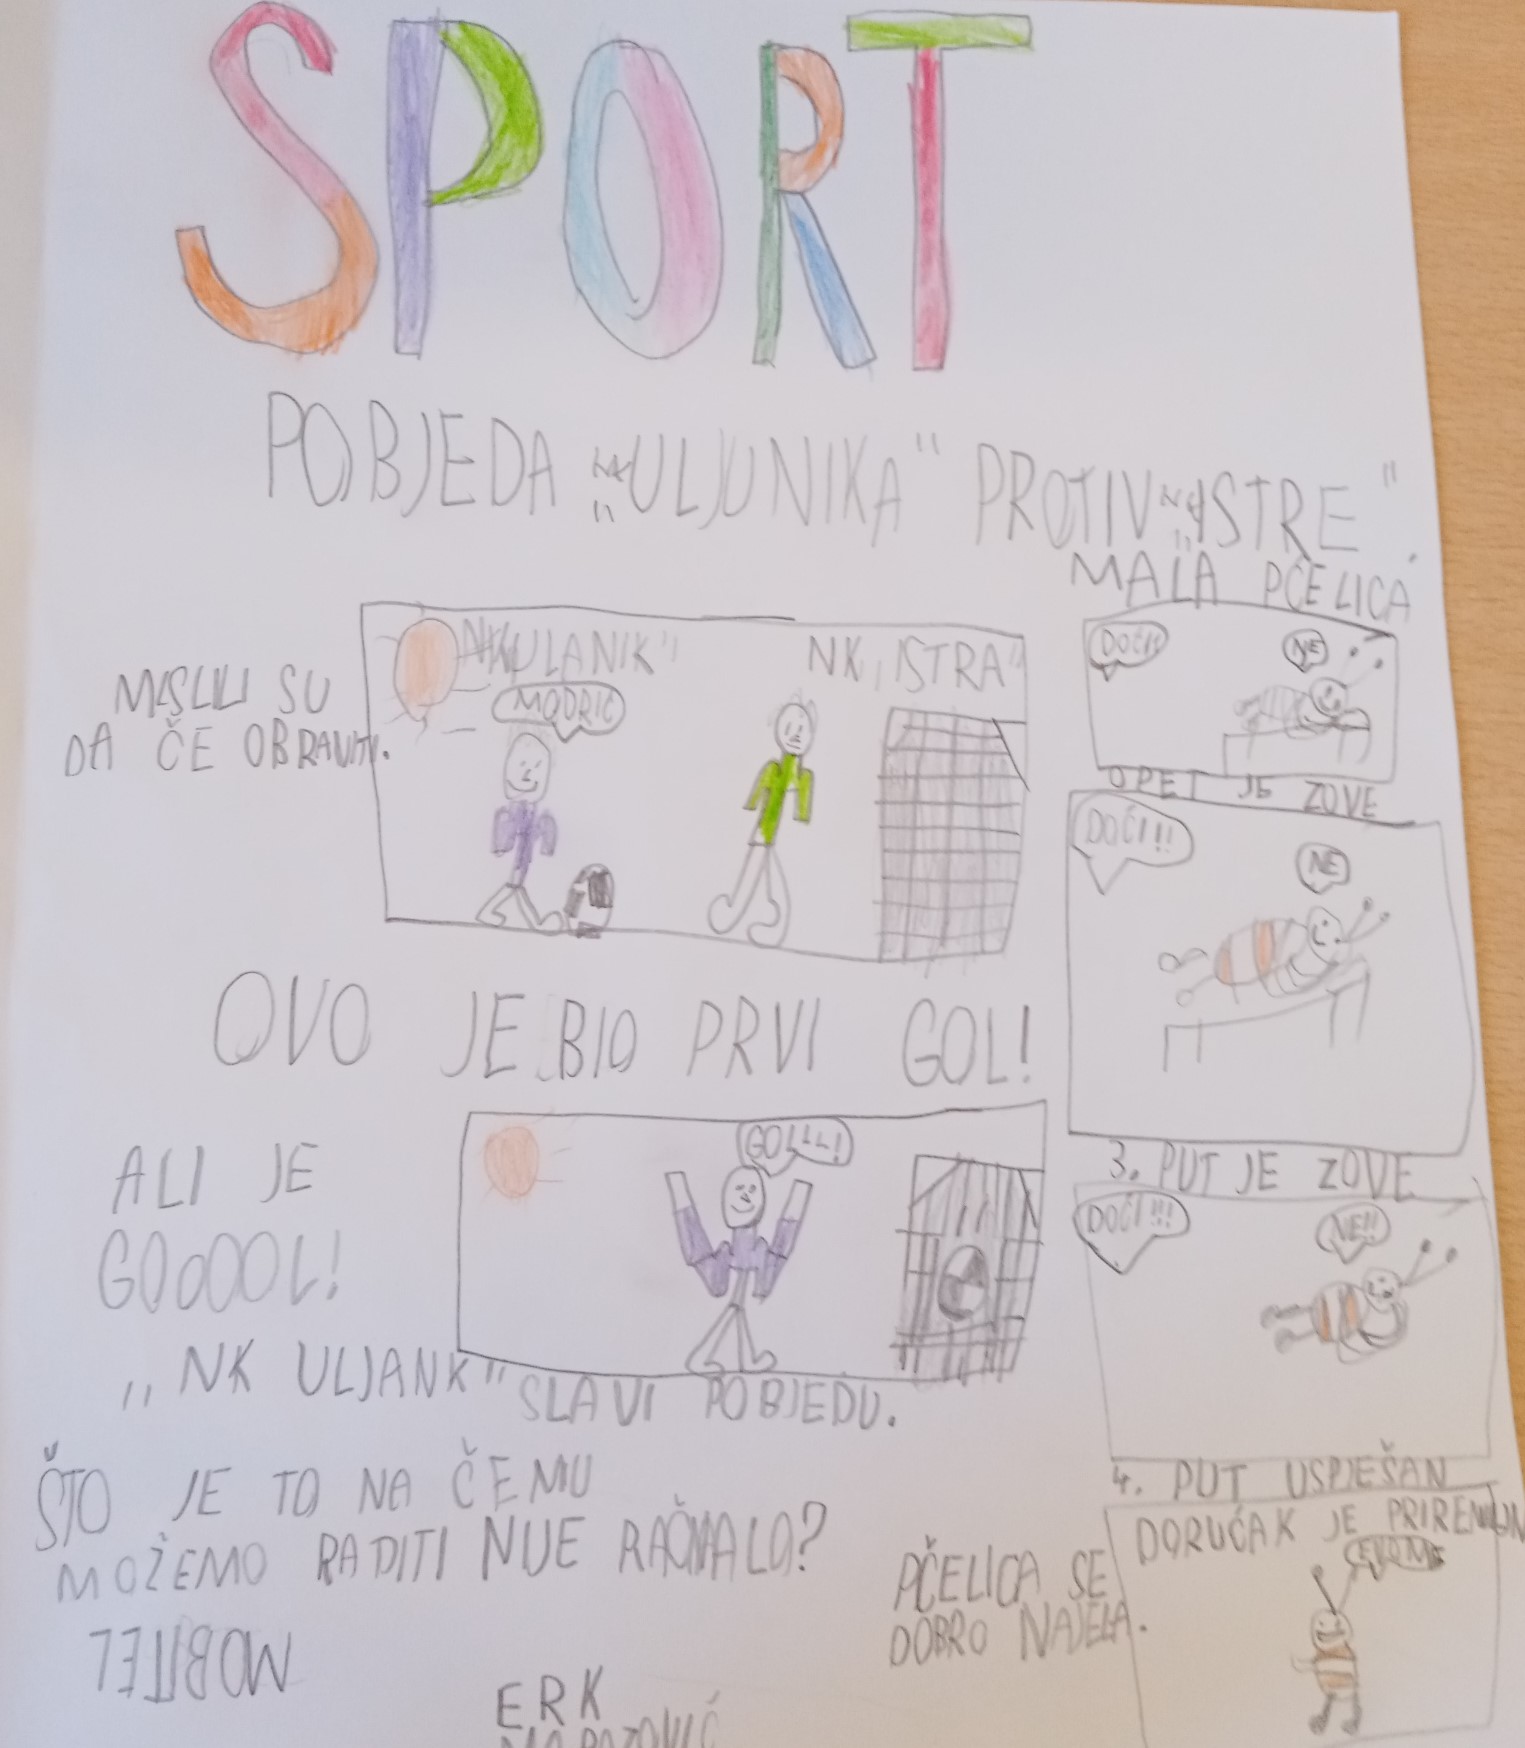 SPORT
POBJEDA „ULJUNIKA" PROTIV „ISTRE".
MISLILI SU
DA ČE OBRANITI.
NK „ULANIK"
NK „ISTRA"
MODRIĆ
OVO JE BIO PRVI GOL!
ALI JE
GOOOOOL!
GOLLLL!
„NK ULJANK" SLAVI POBJEDU.
ŠTO JE TO NA ČEMU
MOŽEMO RADITI NIJE RAČNALO?
MOBITEL
ERK
MALA PČELICA
DOĆI!!
NE
OPET JE ZOVE
DOĆI!!!
NE
3. PUT JE ZOVE
DOĆI!!!
NE!!
4. PUT USPJEŠAN
DORUĆAK JE
PČELICA SE
DOBRO NAJELA.